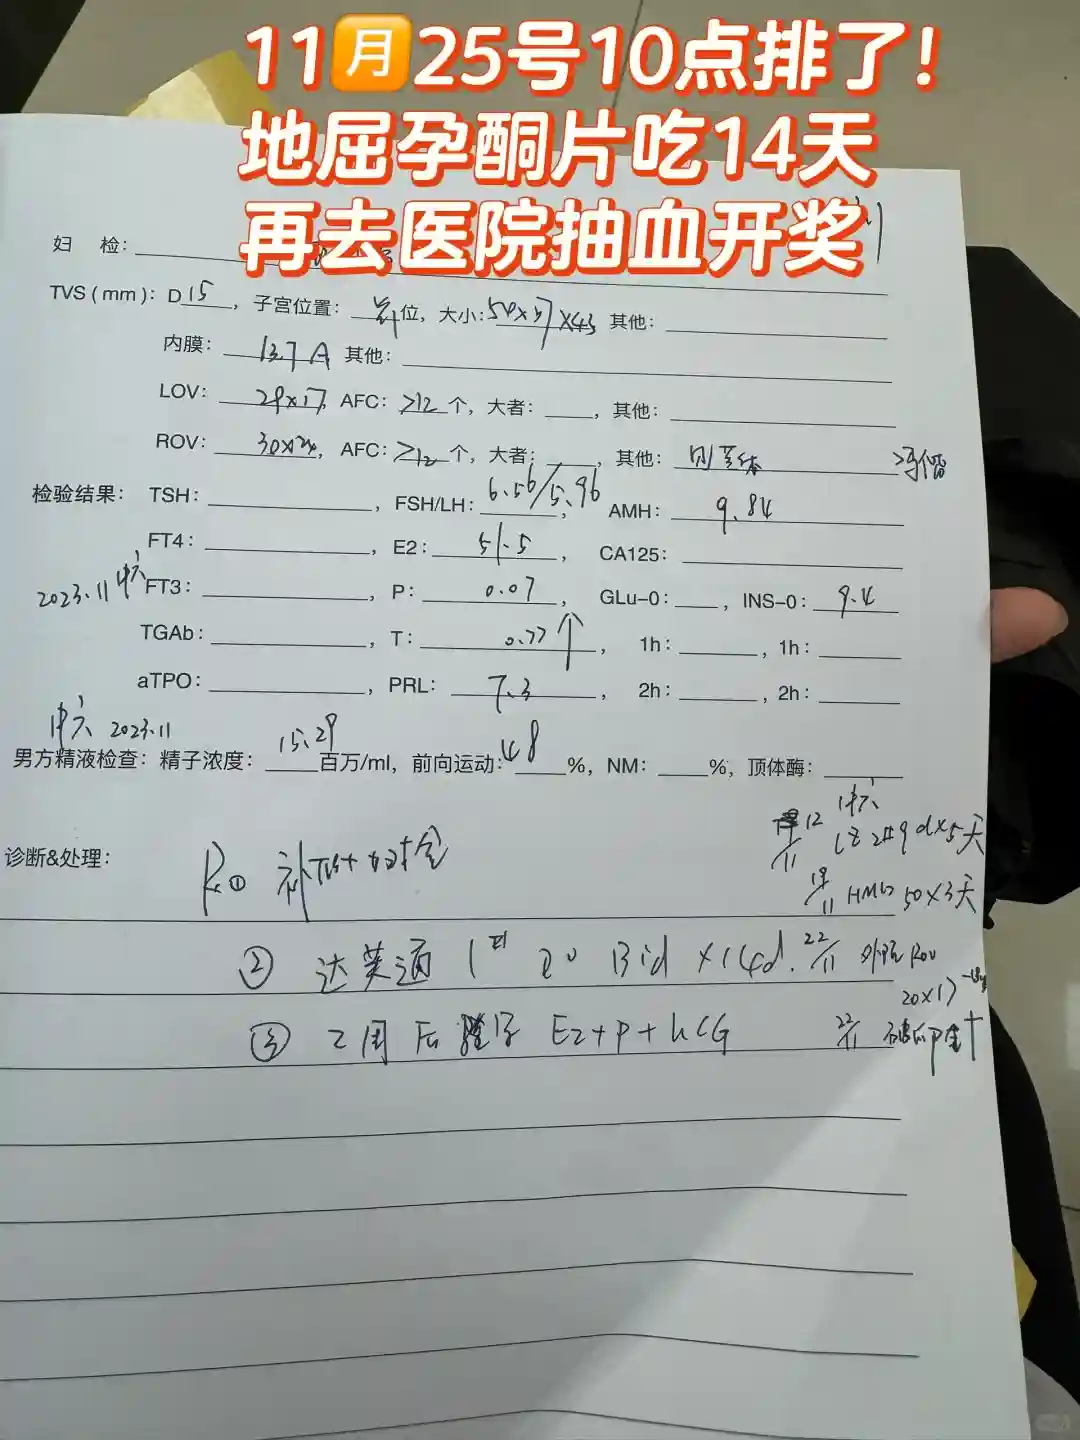 11月25号10点排了!
地屈孕酮片吃14天
再去医院抽血开奖
妇 检:
TVS(mm): D 15, 子宫位置: 前位, 大小: 50×37×43 其他:
内膜: 13.7 A 其他:
LOV: 29×17, AFC: >12个, 大者: , 其他:
ROV: 30×24, AFC: >12个, 大者: , 其他:
检验结果: TSH: , FSH/LH: 6.56/5.96, AMH: 9.84
FT4: , E2: 51.5, CA125:
2023.11 中六 FT3: , P: 0.07, GLu-0: , INS-0: 9.4
TGAb: , T: 0.77↑, 1h: , 1h:
aTPO: , PRL: 7.3, 2h: , 2h:
中六 2023.11
男方精液检查: 精子浓度: 15.29百万/ml, 前向运动: 48%, NM: %, 顶体酶:
中六
12/11 LZ 2# qd×5天
诊断&处理: R ①
19/11 HMG 50×3天
② 达芙通 1 20 Bid ×14d. 22/11 ROV
20×17
③ 2周后 E2+P+hCG 22/11